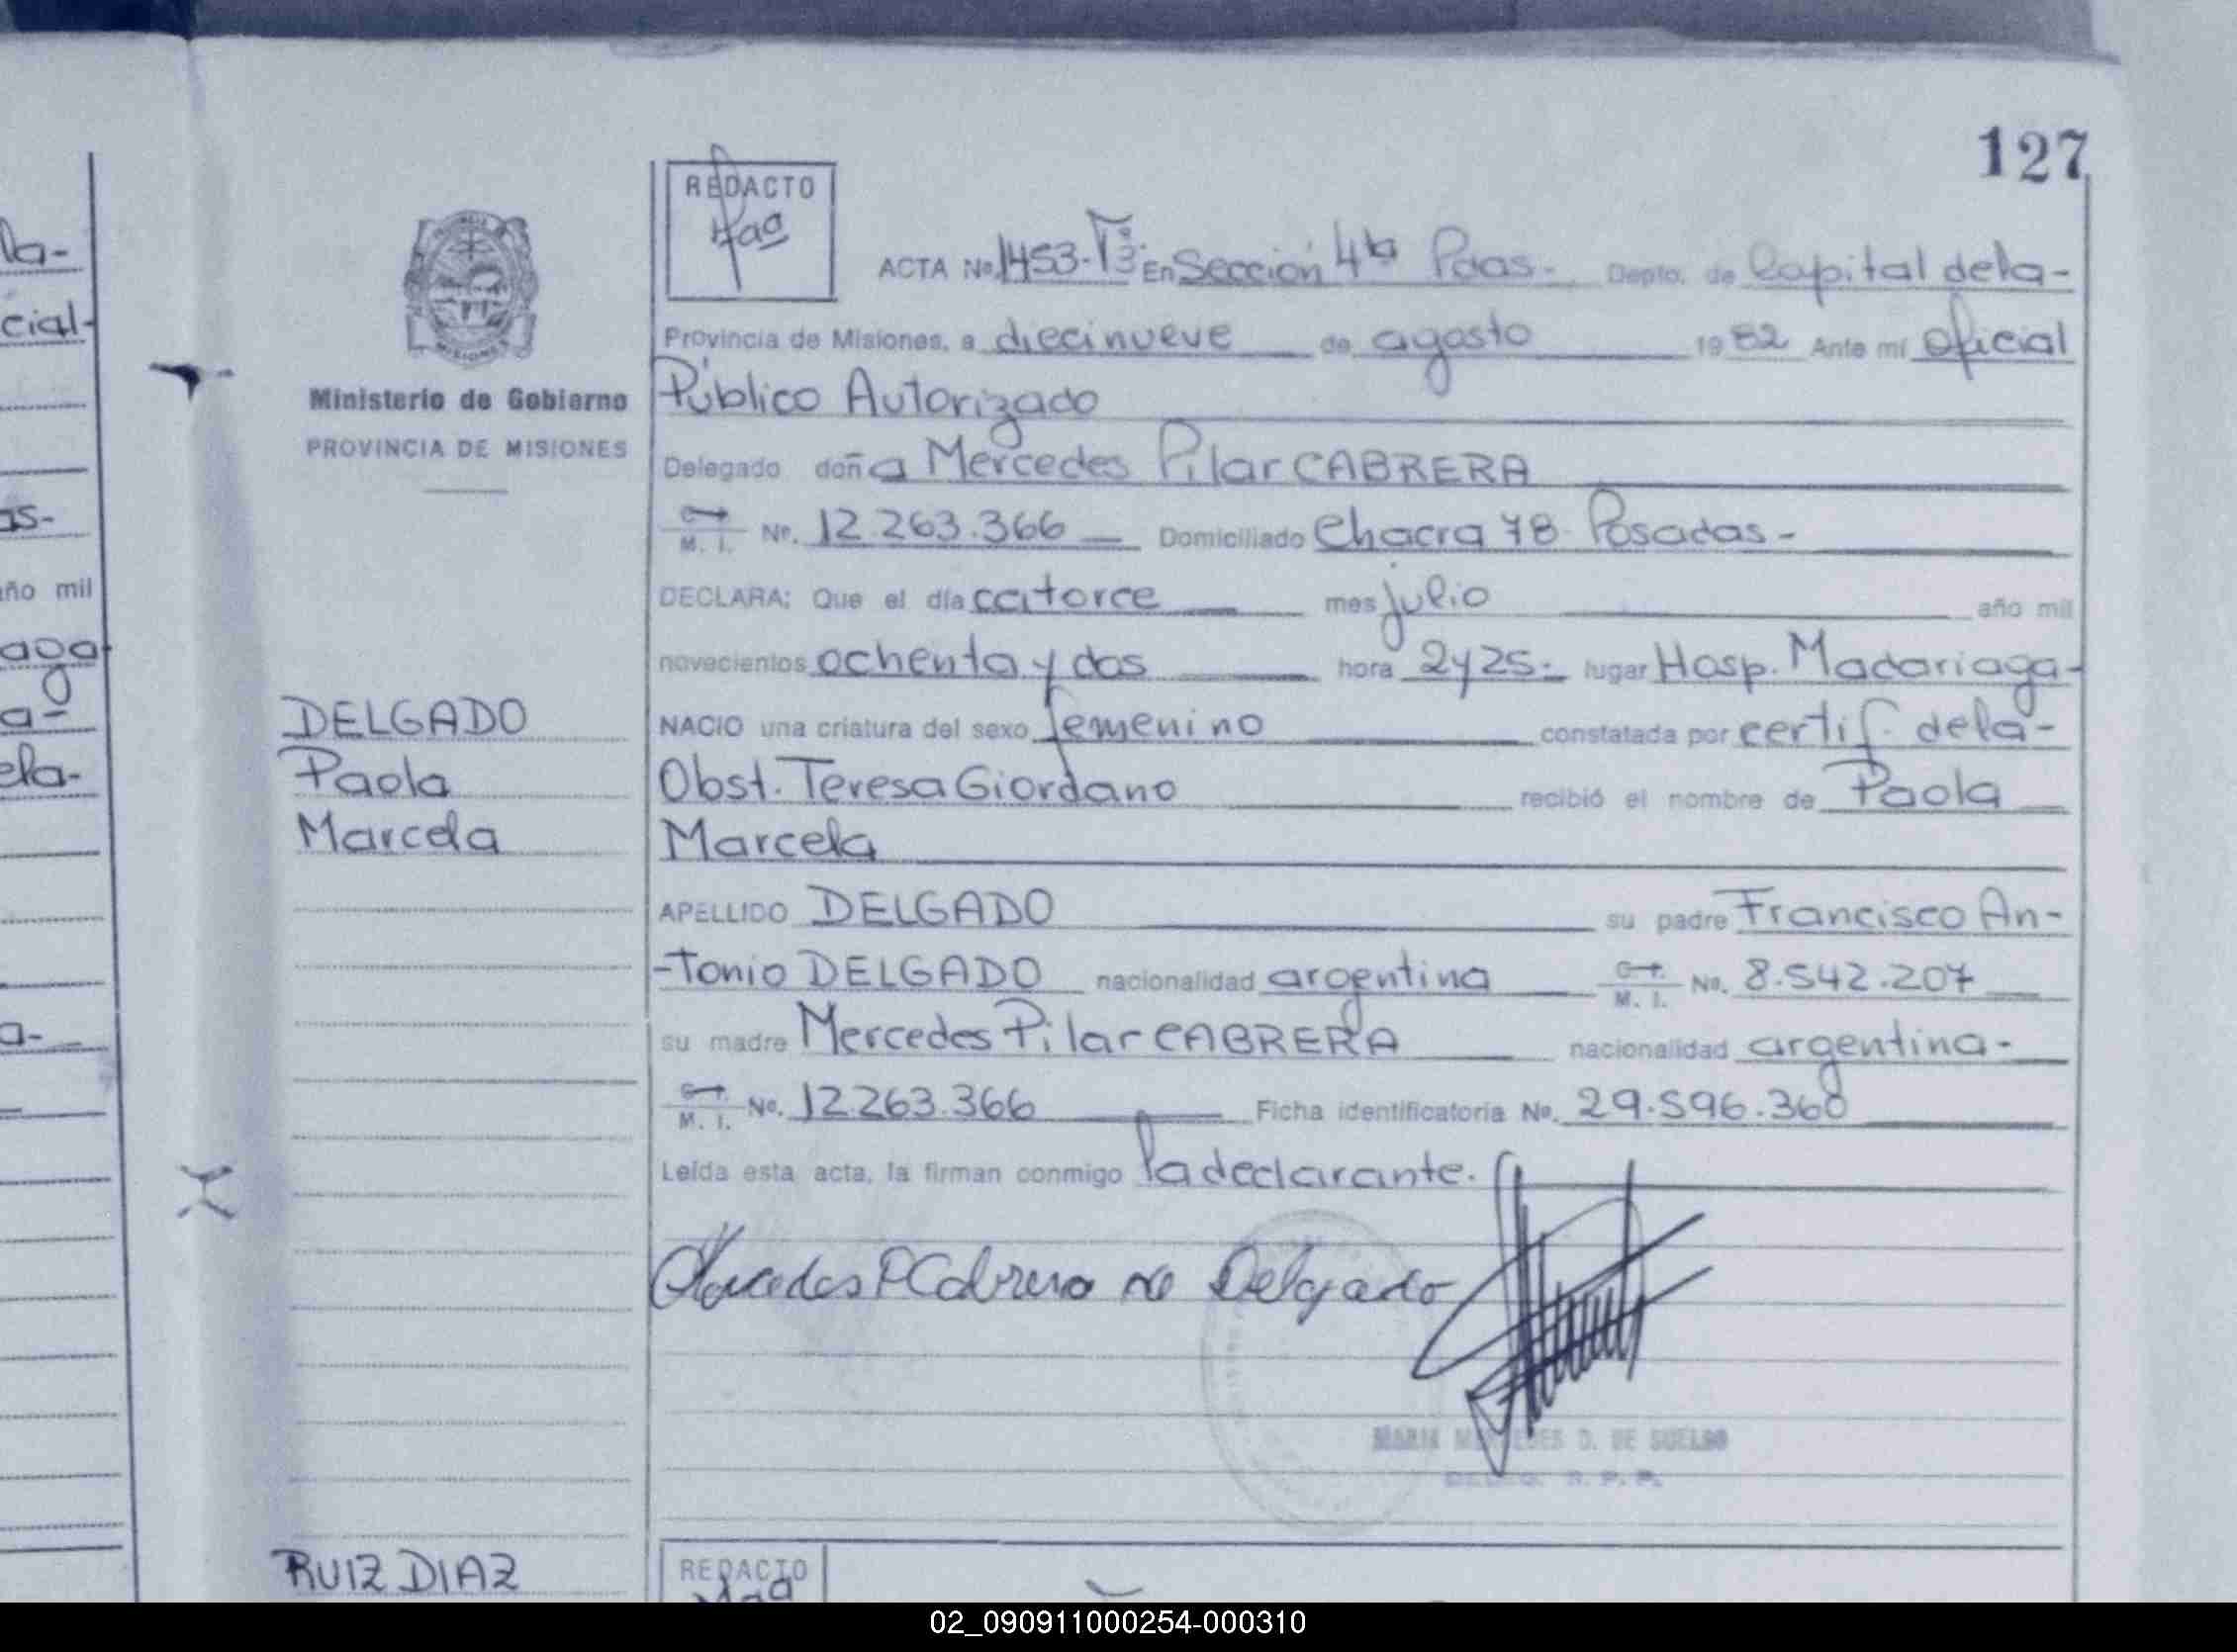 127
REDACTO
ACTA No. 1453-T3: En Sección 4ta Pdas.- Depto. de Capital dela-
Provincia de Misiones, a diecinueve de agosto 1982 Ante mí oficial
Ministerio de Gobierno
PROVINCIA DE MISIONES
Público Autorizado
Delegado doña Mercedes Pilar CABRERA
M. I. No. 12.263.366 Domiciliado Chacra 78 Posadas-
DECLARA: Que el día catorce mes julio año mil
novecientos ochenta y dos hora 2y25.- lugar Hosp. Madariaga-
NACIO una criatura del sexo femenino constatada por certif. dela-
Obst. Teresa Giordano recibió el nombre de Paola
Marcela
DELGADO
Paola
Marcela
APELLIDO DELGADO su padre Francisco An-
-tonio DELGADO nacionalidad argentina M. I. No. 8.542.207
su madre Mercedes Pilar CABRERA nacionalidad argentina-
M. I. No. 12.263.366 Ficha identificatoria No. 29.596.360
Leída esta acta, la firman conmigo la declarante.
Mercedes P Cabrera de Delgado
MARIA MERCEDES D. DE SUELDO
RUIZ DIAZ
REDACTO
la-
cial-
as-
año mil
aga-
ela-
a-
02_090911000254-000310